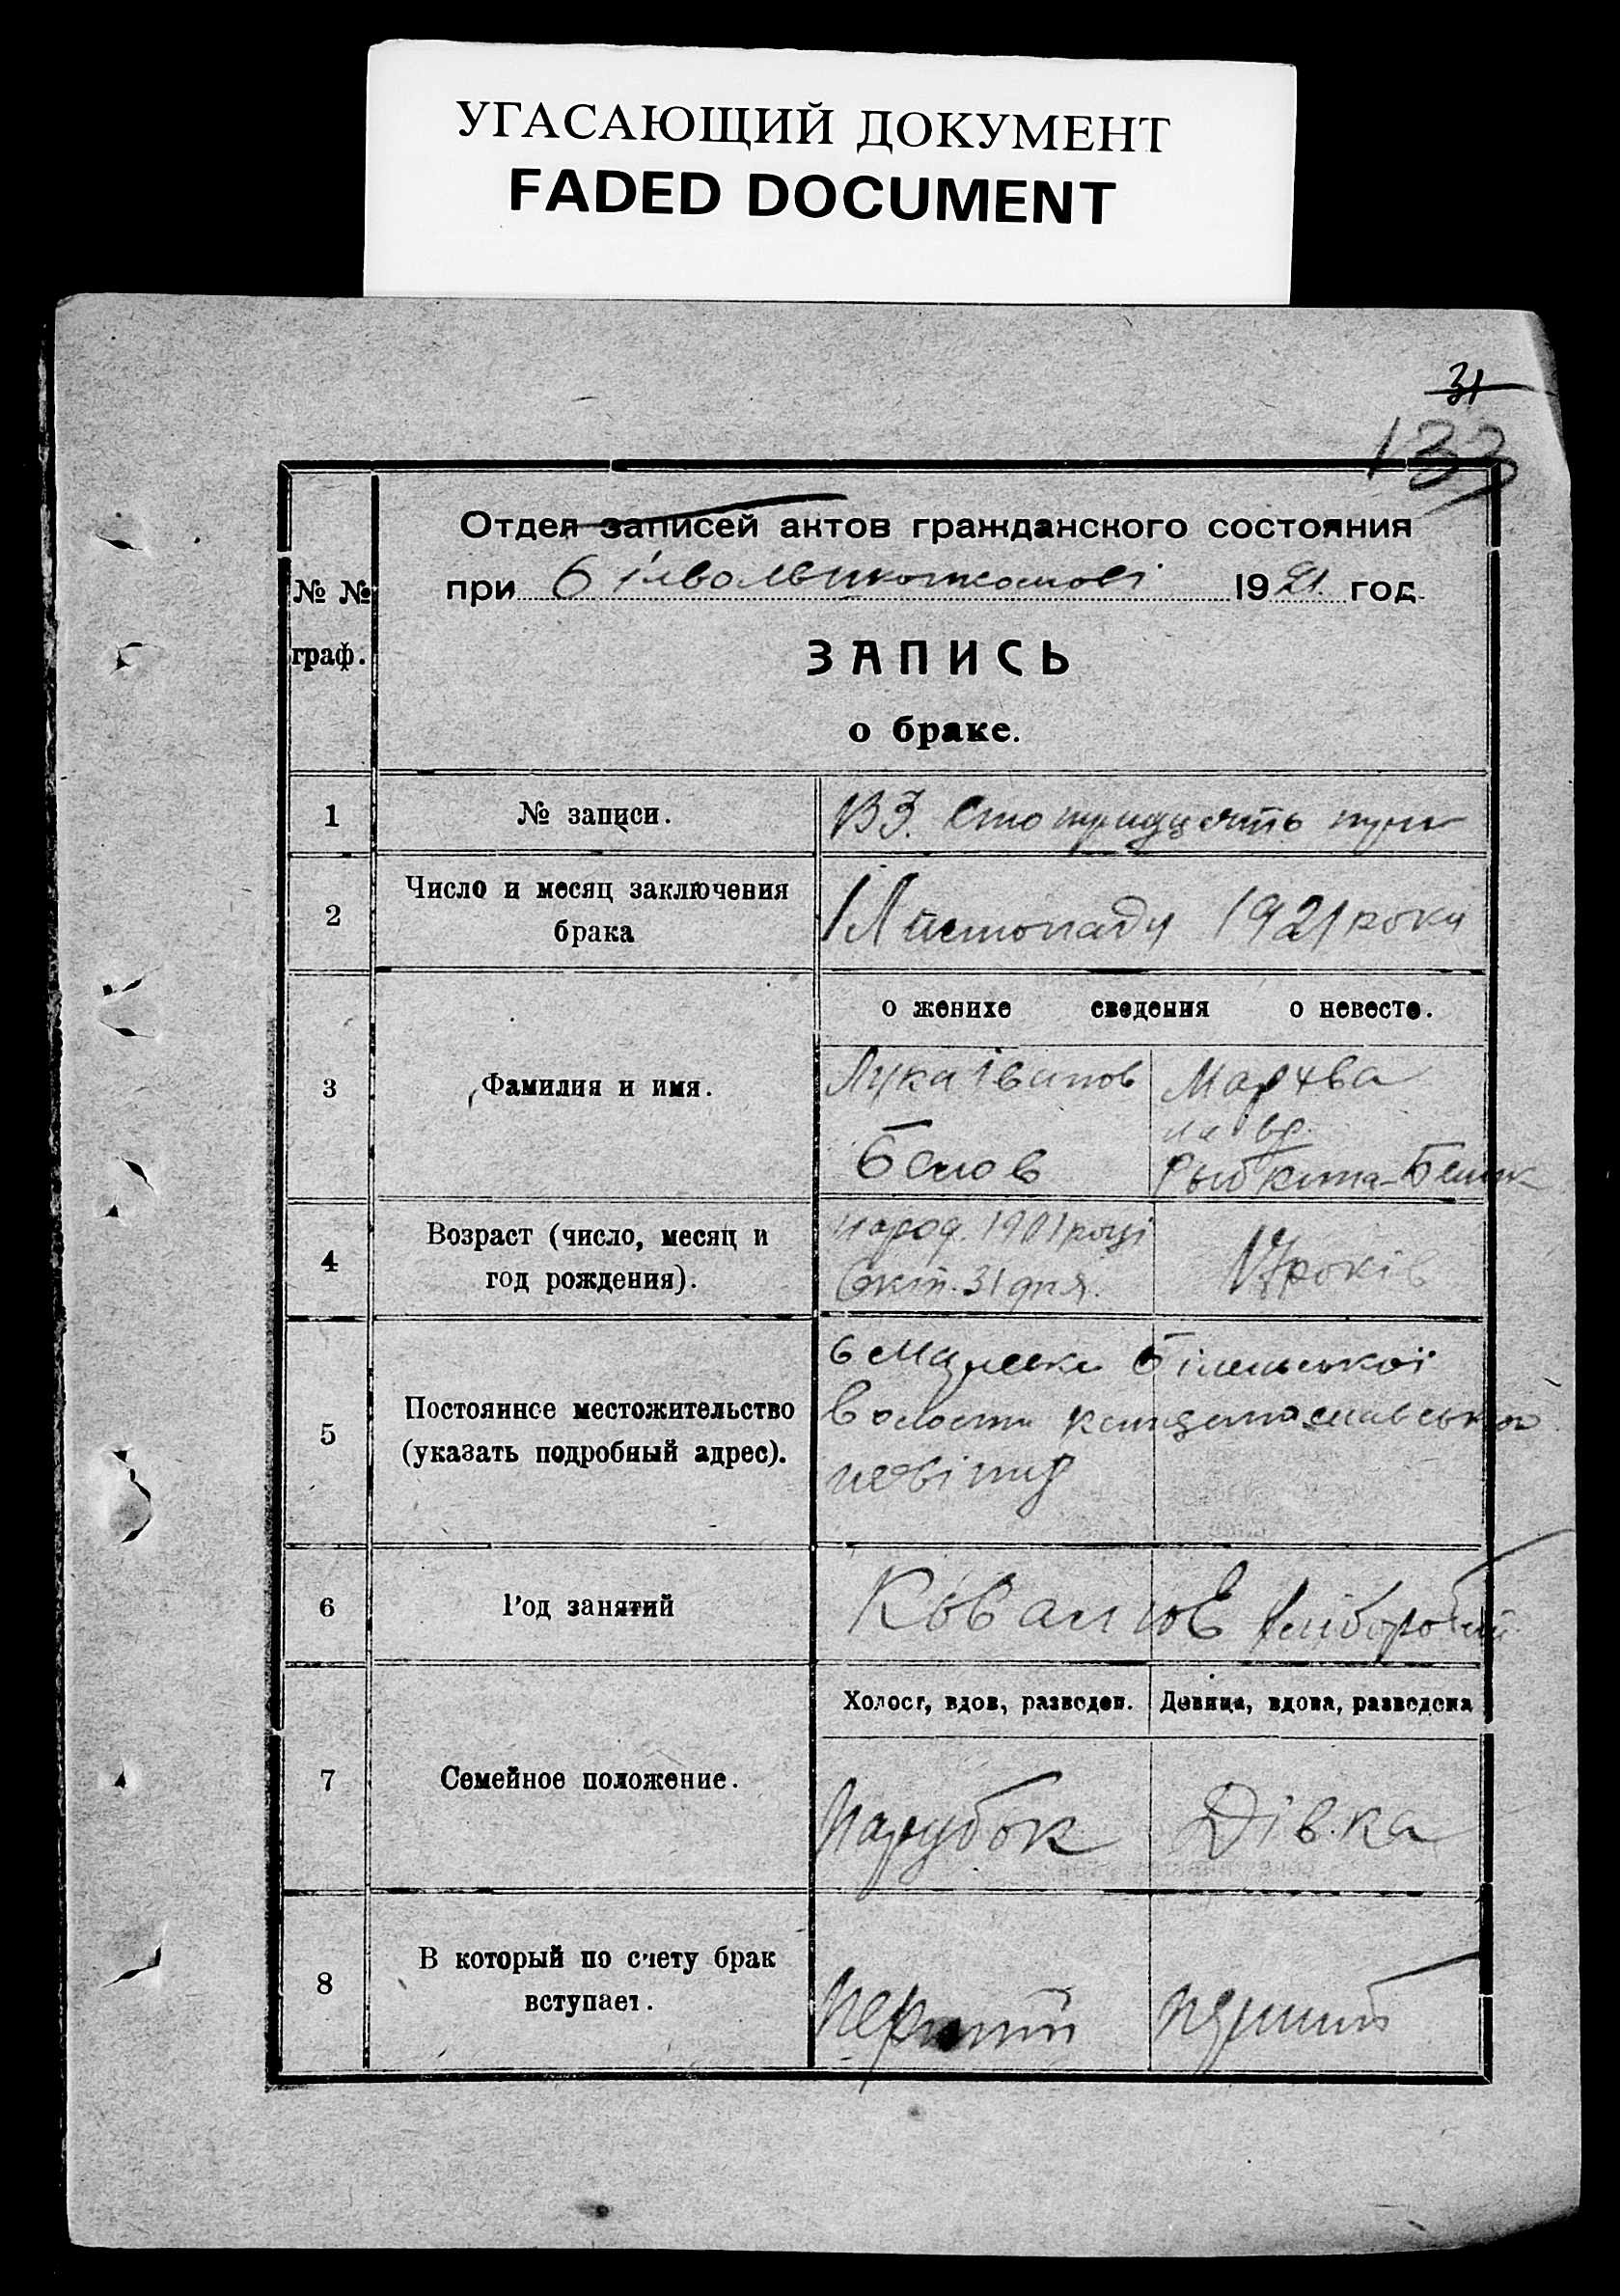 УГАСАЮЩИЙ ДОКУМЕНТ
FADED DOCUMENT
31
133
Отдел записей актов гражданского состояния
при 1921. год.
№ №
граф.
ЗАПИСЬ
о браке.
1
№ записи.
133. Сто тридцять три
2
Число и месяц заключения
брака
1 Листопаду 1921 року
о женихе сведения о невесте.
3
Фамилия и имя.
Лука Іванов
Белов
Марфа
4
Возраст (число, месяц и
год рождения).
народ. 1901 році
Окт. 31 дня.
17 років
5
Постоянное местожительство
(указать подробный адрес).
Біленської
Волости
повіту
6
Род занятий
хлібороби
7
Семейное положение.
Холост, вдов, разведен.
Девица, вдова, разведена
Парубок
Дівка
8
В который по счету брак
вступает.
перший
перший